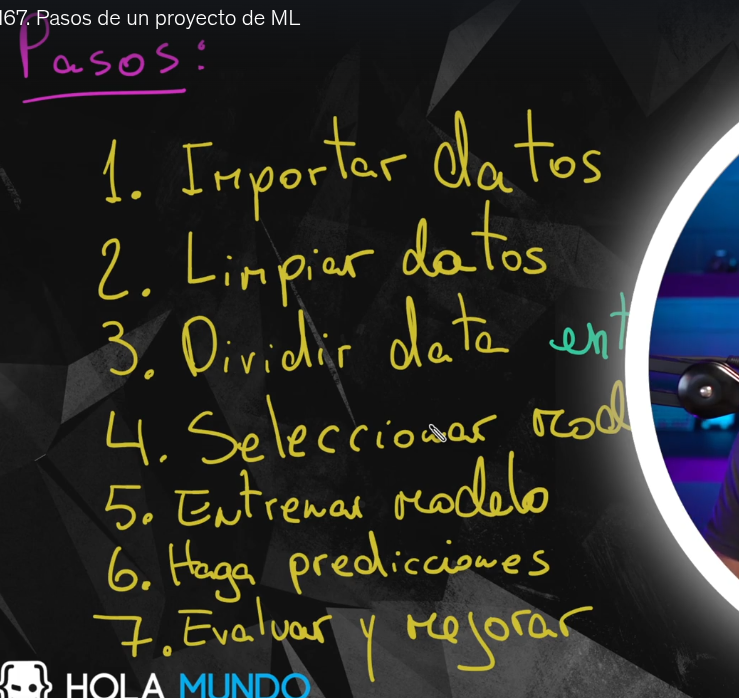 167. Pasos de un proyecto de ML
Pasos:
1. Importar datos
2. Limpiar datos
3. Dividir data ent
4. Seleccionar mod
5. Entrenar modelo
6. Haga predicciones
7. Evaluar y mejorar
HOLA MUNDO